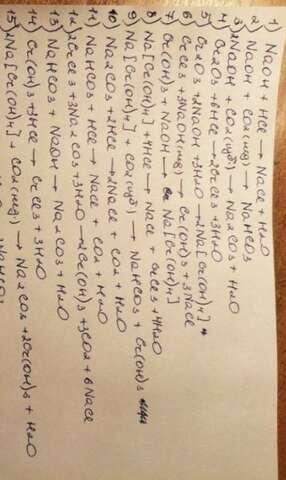 1) NaOH + HCl → NaCl + H2O
2) NaOH + CO2(изб) → NaHCO3
3) 2NaOH + CO2(нед) → Na2CO3 + H2O
4) Cr2O3 + 6HCl → 2CrCl3 + 3H2O
5) Cr2O3 + 2NaOH + 3H2O → 2Na[Cr(OH)4]
6) CrCl3 + 3NaOH(нед) → Cr(OH)3 + 3NaCl
7) Cr(OH)3 + NaOH → Na[Cr(OH)4]
8) Na[Cr(OH)4] + 4HCl → NaCl + CrCl3 + 4H2O
9) Na[Cr(OH)4] + CO2(изб) → NaHCO3 + Cr(OH)3
10) Na2CO3 + 2HCl → 2NaCl + CO2 + H2O
11) NaHCO3 + HCl → NaCl + CO2 + H2O
12) 2CrCl3 + 3Na2CO3 + 3H2O → 2Cr(OH)3 + 3CO2 + 6NaCl
13) NaHCO3 + NaOH → Na2CO3 + H2O
14) Cr(OH)3 + 3HCl → CrCl3 + 3H2O
15) 2Na[Cr(OH)4] + CO2(нед) → Na2CO3 + 2Cr(OH)3 + H2O